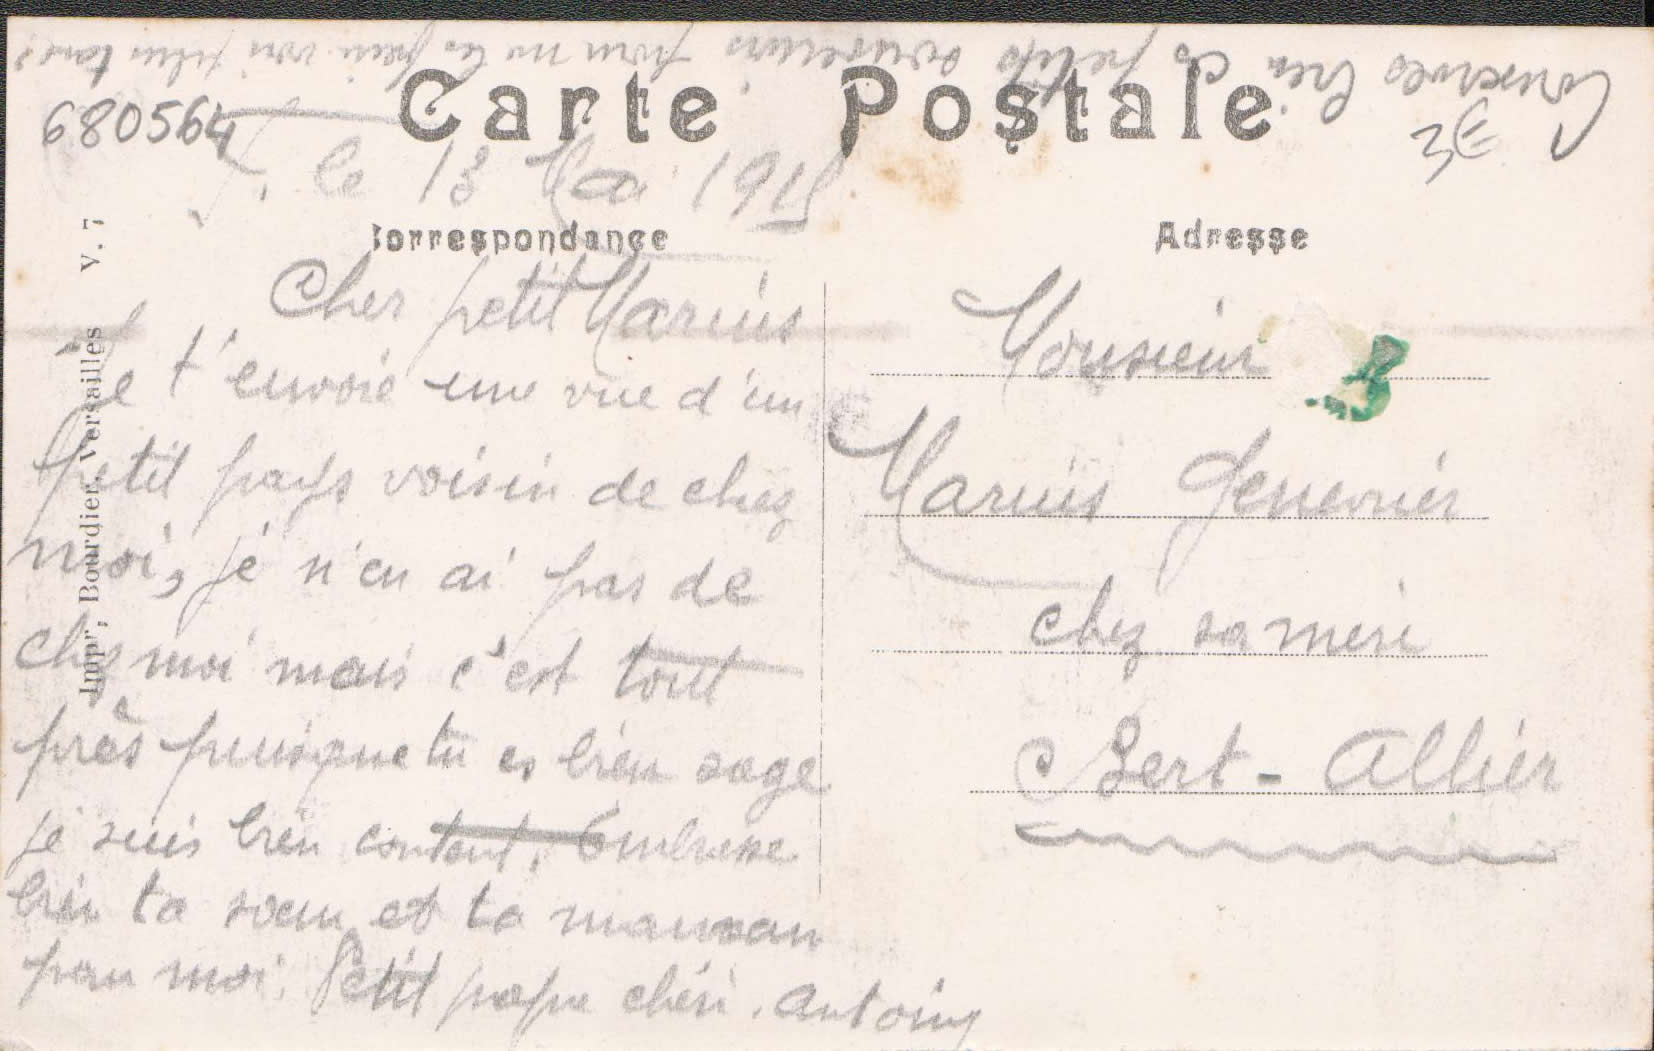 Conserves bien ces petits souvenirs pour me les faire voir plus tard.
680564
Carte Postale
3E
le 13 Mai 1915
Correspondance
Adresse
Cher petit Marius
Je t'envoie une vue d'un
petit pays voisin de chez
moi, je n'en ai pas de
chez moi mais c'est tout
près puisque tu es bien sage
je suis bien content. Embrasse
bien ta soeur et ta maman
pour moi. Petit papa chéri. Antoine
Monsieur
Marius Genevrier
chez sa mère
Bert - Allier
Impr. Bourdier, Versailles V. 7